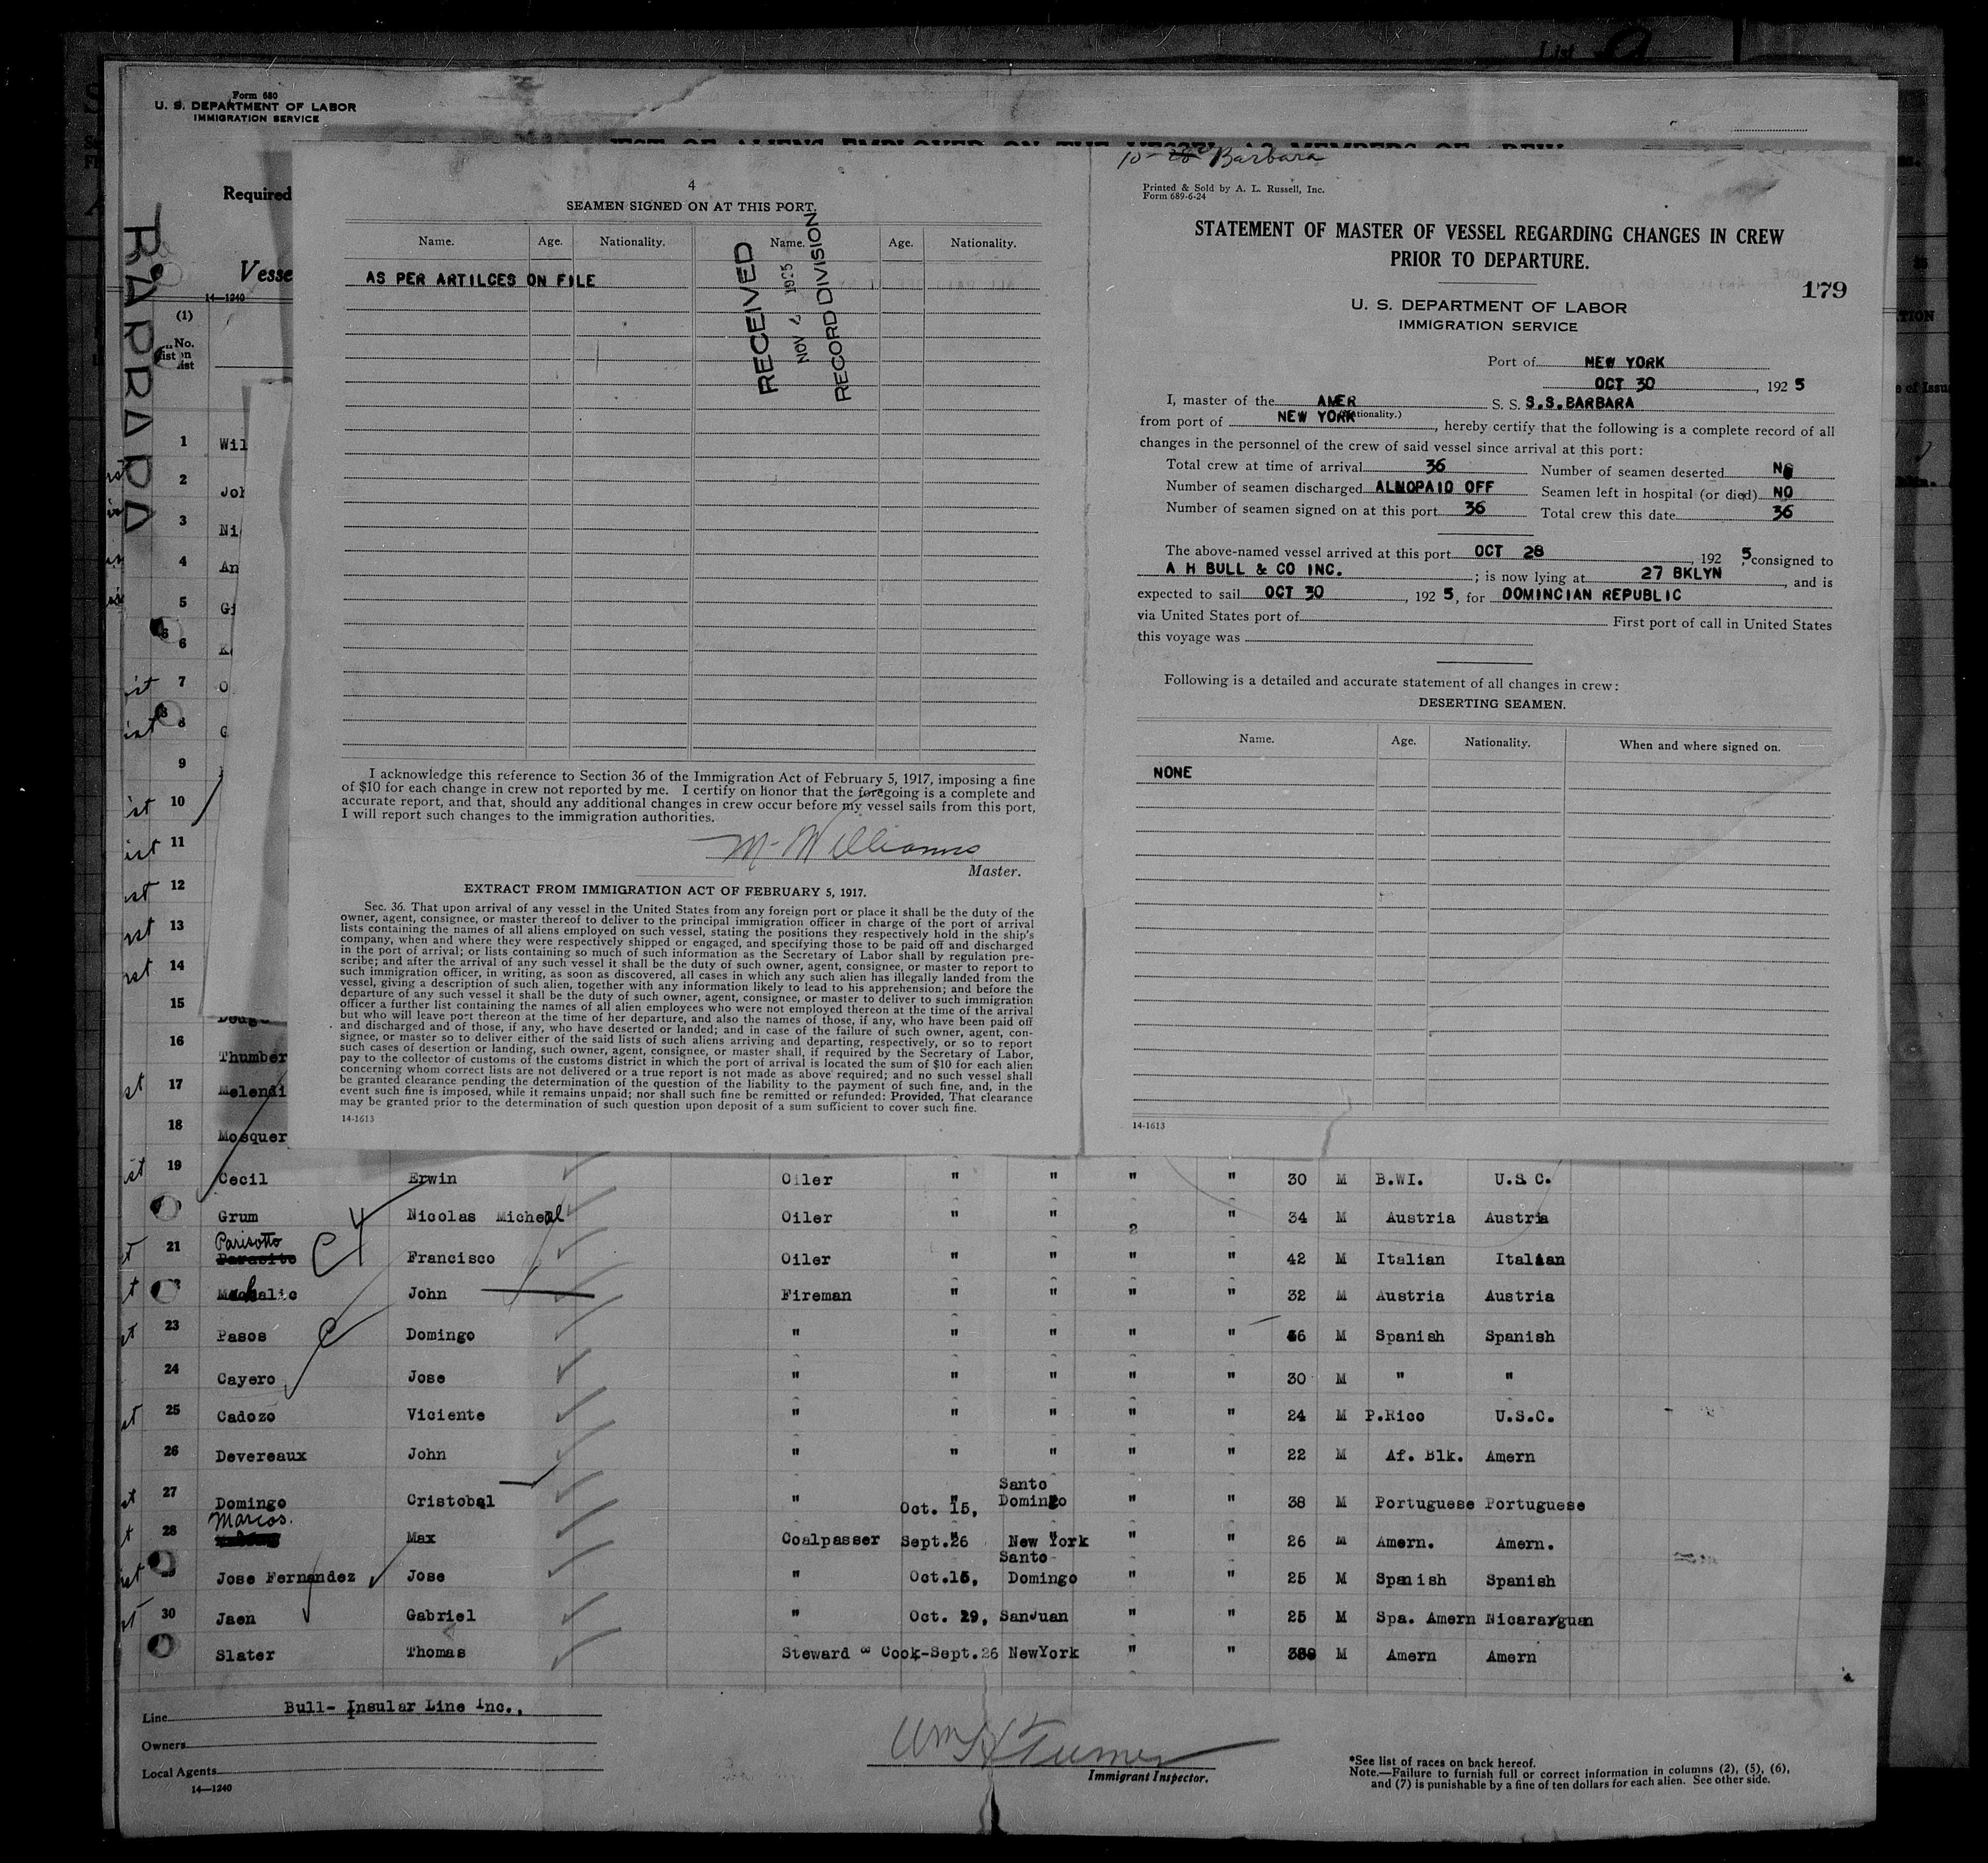 List
Form 680
U. S. DEPARTMENT OF LABOR
IMMIGRATION SERVICE
LIST OF ALIENS EMPLOYED ON THE VESSEL AS MEMBERS OF CREW
Required
Vesse
14—1240
(1)
No.
on
list
BARBARA
4
SEAMEN SIGNED ON AT THIS PORT.
Name. Age. Nationality. Name. Age. Nationality.
AS PER ARTILCES ON FILE
RECEIVED
NOV 6 1925
RECORD DIVISION
I acknowledge this reference to Section 36 of the Immigration Act of February 5, 1917, imposing a fine
of $10 for each change in crew not reported by me. I certify on honor that the foregoing is a complete and
accurate report, and that, should any additional changes in crew occur before my vessel sails from this port,
I will report such changes to the immigration authorities.
M. Williams
Master.
EXTRACT FROM IMMIGRATION ACT OF FEBRUARY 5, 1917.
Sec. 36. That upon arrival of any vessel in the United States from any foreign port or place it shall be the duty of the
owner, agent, consignee, or master thereof to deliver to the principal immigration officer in charge of the port of arrival
lists containing the names of all aliens employed on such vessel, stating the positions they respectively hold in the ship's
company, when and where they were respectively shipped or engaged, and specifying those to be paid off and discharged
in the port of arrival; or lists containing so much of such information as the Secretary of Labor shall by regulation pre-
scribe; and after the arrival of any such vessel it shall be the duty of such owner, agent, consignee, or master to report to
such immigration officer, in writing, as soon as discovered, all cases in which any such alien has illegally landed from the
vessel, giving a description of such alien, together with any information likely to lead to his apprehension; and before the
departure of any such vessel it shall be the duty of such owner, agent, consignee, or master to deliver to such immigration
officer a further list containing the names of all alien employees who were not employed thereon at the time of the arrival
but who will leave port thereon at the time of her departure, and also the names of those, if any, who have been paid off
and discharged and of those, if any, who have deserted or landed; and in case of the failure of such owner, agent, con-
signee, or master so to deliver either of the said lists of such aliens arriving and departing, respectively, or so to report
such cases of desertion or landing, such owner, agent, consignee, or master shall, if required by the Secretary of Labor,
pay to the collector of customs of the customs district in which the port of arrival is located the sum of $10 for each alien
concerning whom correct lists are not delivered or a true report is not made as above required; and no such vessel shall
be granted clearance pending the determination of the question of the liability to the payment of such fine, and, in the
event such fine is imposed, while it remains unpaid; nor shall such fine be remitted or refunded: Provided, That clearance
may be granted prior to the determination of such question upon deposit of a sum sufficient to cover such fine.
14-1613
10-28 Barbara
Printed & Sold by A. L. Russell, Inc.
Form 689-6-24
STATEMENT OF MASTER OF VESSEL REGARDING CHANGES IN CREW
PRIOR TO DEPARTURE.
179
U. S. DEPARTMENT OF LABOR
IMMIGRATION SERVICE
Port of NEW YORK
OCT 30, 192 5
I, master of the AMER S. S. S.S.BARBARA
(Nationality.)
from port of NEW YORK, hereby certify that the following is a complete record of all
changes in the personnel of the crew of said vessel since arrival at this port:
Total crew at time of arrival 36 Number of seamen deserted NO
Number of seamen discharged ALNOPAID OFF Seamen left in hospital (or died) NO
Number of seamen signed on at this port 36 Total crew this date 36
The above-named vessel arrived at this port OCT 28, 192 5, consigned to
A H BULL & CO INC. ; is now lying at 27 BKLYN, and is
expected to sail OCT 30, 192 5, for DOMINCIAN REPUBLIC
via United States port of First port of call in United States
this voyage was
Following is a detailed and accurate statement of all changes in crew:
DESERTING SEAMEN.
Name. Age. Nationality. When and where signed on.
NONE
14-1613
1 Wil
2 Joh
3 Ni
4 An
5 Gi
6 K
7 O
8 G
9
10
11
12
13
14
15 Doug
16 Thumber
17 Melendi
18 Mosquer
19 Cecil Erwin Oiler " " " " 30 M B.WI. U.S.C.
Grum Nicolas Micheal Oiler " " " 34 M Austria Austria
21 Parisotto Francisco Oiler " " " " 42 M Italian Italian
John Fireman " " " " 32 M Austria Austria
23 Pasos Domingo " " " " " M Spanish Spanish
24 Cayero Jose " " " " " 30 M " "
25 Cadozo Viciente " " " " " 24 M P.Rico U.S.C.
26 Devereaux John " " " " " 22 M Af. Blk. Amern
27 Domingo Cristobal " Oct. 15, Santo Domingo " " 38 M Portuguese Portuguese
28 Marcos. Max Coalpasser Sept.26 New York " " 26 M Amern. Amern.
Jose Fernandez Jose " Oct.15, Santo Domingo " " 25 M Spanish Spanish
30 Jaen Gabriel " Oct. 29, SanJuan " " 25 M Spa. Amern Nicararguan
Slater Thomas Steward & Cook-Sept.26 NewYork " " M Amern Amern
Line Bull- Insular Line Inc.,
Owners
Local Agents
14—1240
Wm H Turner
Immigrant Inspector.
*See list of races on back hereof.
Note.—Failure to furnish full or correct information in columns (2), (5), (6),
and (7) is punishable by a fine of ten dollars for each alien. See other side.